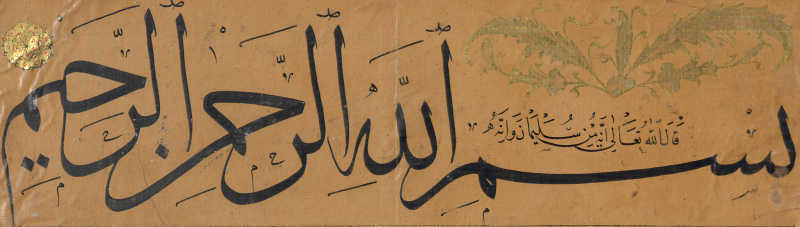 قال الله تعالى إنه من سليمان وإنه
بسم الله الرحمن الرحيم